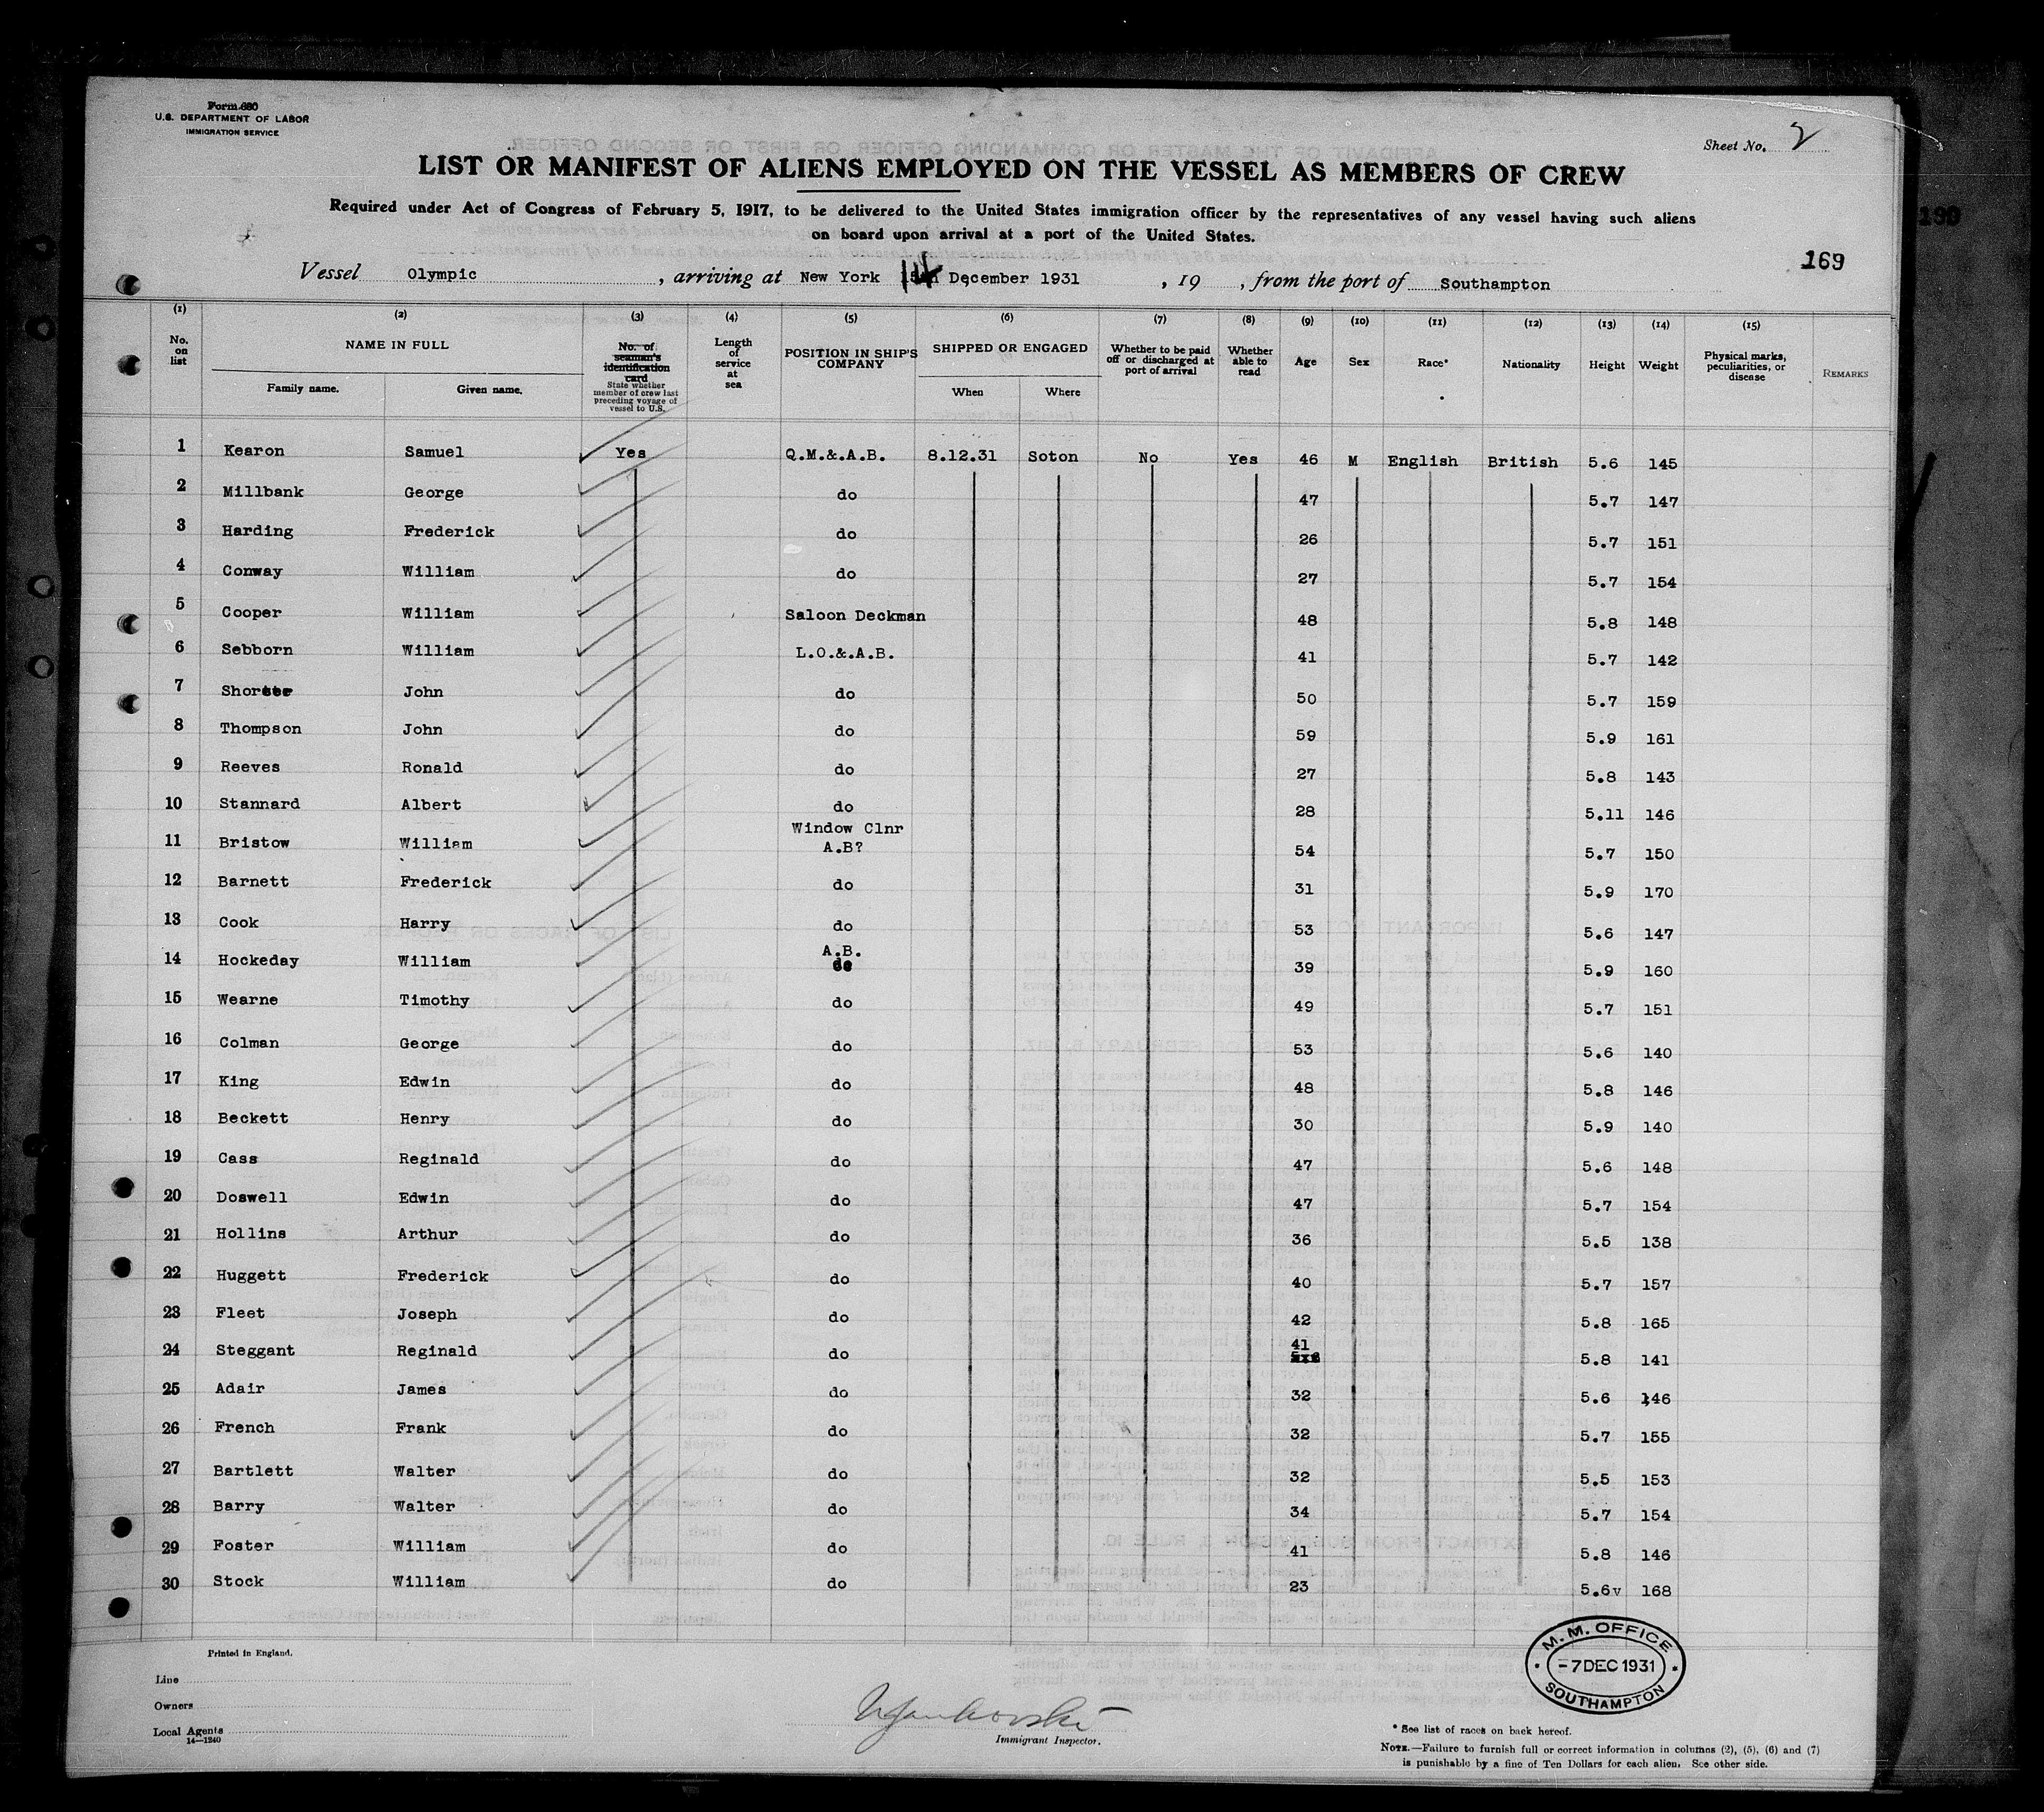 Form 680
U.S. DEPARTMENT OF LABOR
IMMIGRATION SERVICE
Sheet No. 2
LIST OR MANIFEST OF ALIENS EMPLOYED ON THE VESSEL AS MEMBERS OF CREW
Required under Act of Congress of February 5, 1917, to be delivered to the United States immigration officer by the representatives of any vessel having such aliens
on board upon arrival at a port of the United States.
169
Vessel Olympic , arriving at New York 14 December 1931 , 19 , from the port of Southampton
(1) (2) (3) (4) (5) (6) (7) (8) (9) (10) (11) (12) (13) (14) (15)
No. on list NAME IN FULL Family name. Given name. No. of seaman's identification card State whether member of crew last preceding voyage of vessel to U.S. Length of service at sea POSITION IN SHIP'S COMPANY SHIPPED OR ENGAGED When Where Whether to be paid off or discharged at port of arrival Whether able to read Age Sex Race* Nationality Height Weight Physical marks, peculiarities, or disease REMARKS
1 Kearon Samuel Yes Q.M.&.A.B. 8.12.31 Soton No Yes 46 M English British 5.6 145
2 Millbank George do 47 5.7 147
3 Harding Frederick do 26 5.7 151
4 Conway William do 27 5.7 154
5 Cooper William Saloon Deckman 48 5.8 148
6 Sebborn William L.O.&.A.B. 41 5.7 142
7 Shor John do 50 5.7 159
8 Thompson John do 59 5.9 161
9 Reeves Ronald do 27 5.8 143
10 Stannard Albert do 28 5.11 146
11 Bristow William Window Clnr A.B? 54 5.7 150
12 Barnett Frederick do 31 5.9 170
13 Cook Harry do 53 5.6 147
14 Hockeday William A.B. do 39 5.9 160
15 Wearne Timothy do 49 5.7 151
16 Colman George do 53 5.6 140
17 King Edwin do 48 5.8 146
18 Beckett Henry do 30 5.9 140
19 Cass Reginald do 47 5.6 148
20 Doswell Edwin do 47 5.7 154
21 Hollins Arthur do 36 5.5 138
22 Huggett Frederick do 40 5.7 157
23 Fleet Joseph do 42 5.8 165
24 Steggant Reginald do 41 5.8 141
25 Adair James do 32 5.6 146
26 French Frank do 32 5.7 155
27 Bartlett Walter do 32 5.5 153
28 Barry Walter do 34 5.7 154
29 Foster William do 41 5.8 146
30 Stock William do 23 5.6v 168
Printed in England.
Line
Owners
Local Agents
14—1240
Immigrant Inspector.
M. M. OFFICE
-7 DEC 1931
SOUTHAMPTON
* See list of races on back hereof.
NOTE.—Failure to furnish full or correct information in columns (2), (5), (6) and (7)
is punishable by a fine of Ten Dollars for each alien. See other side.